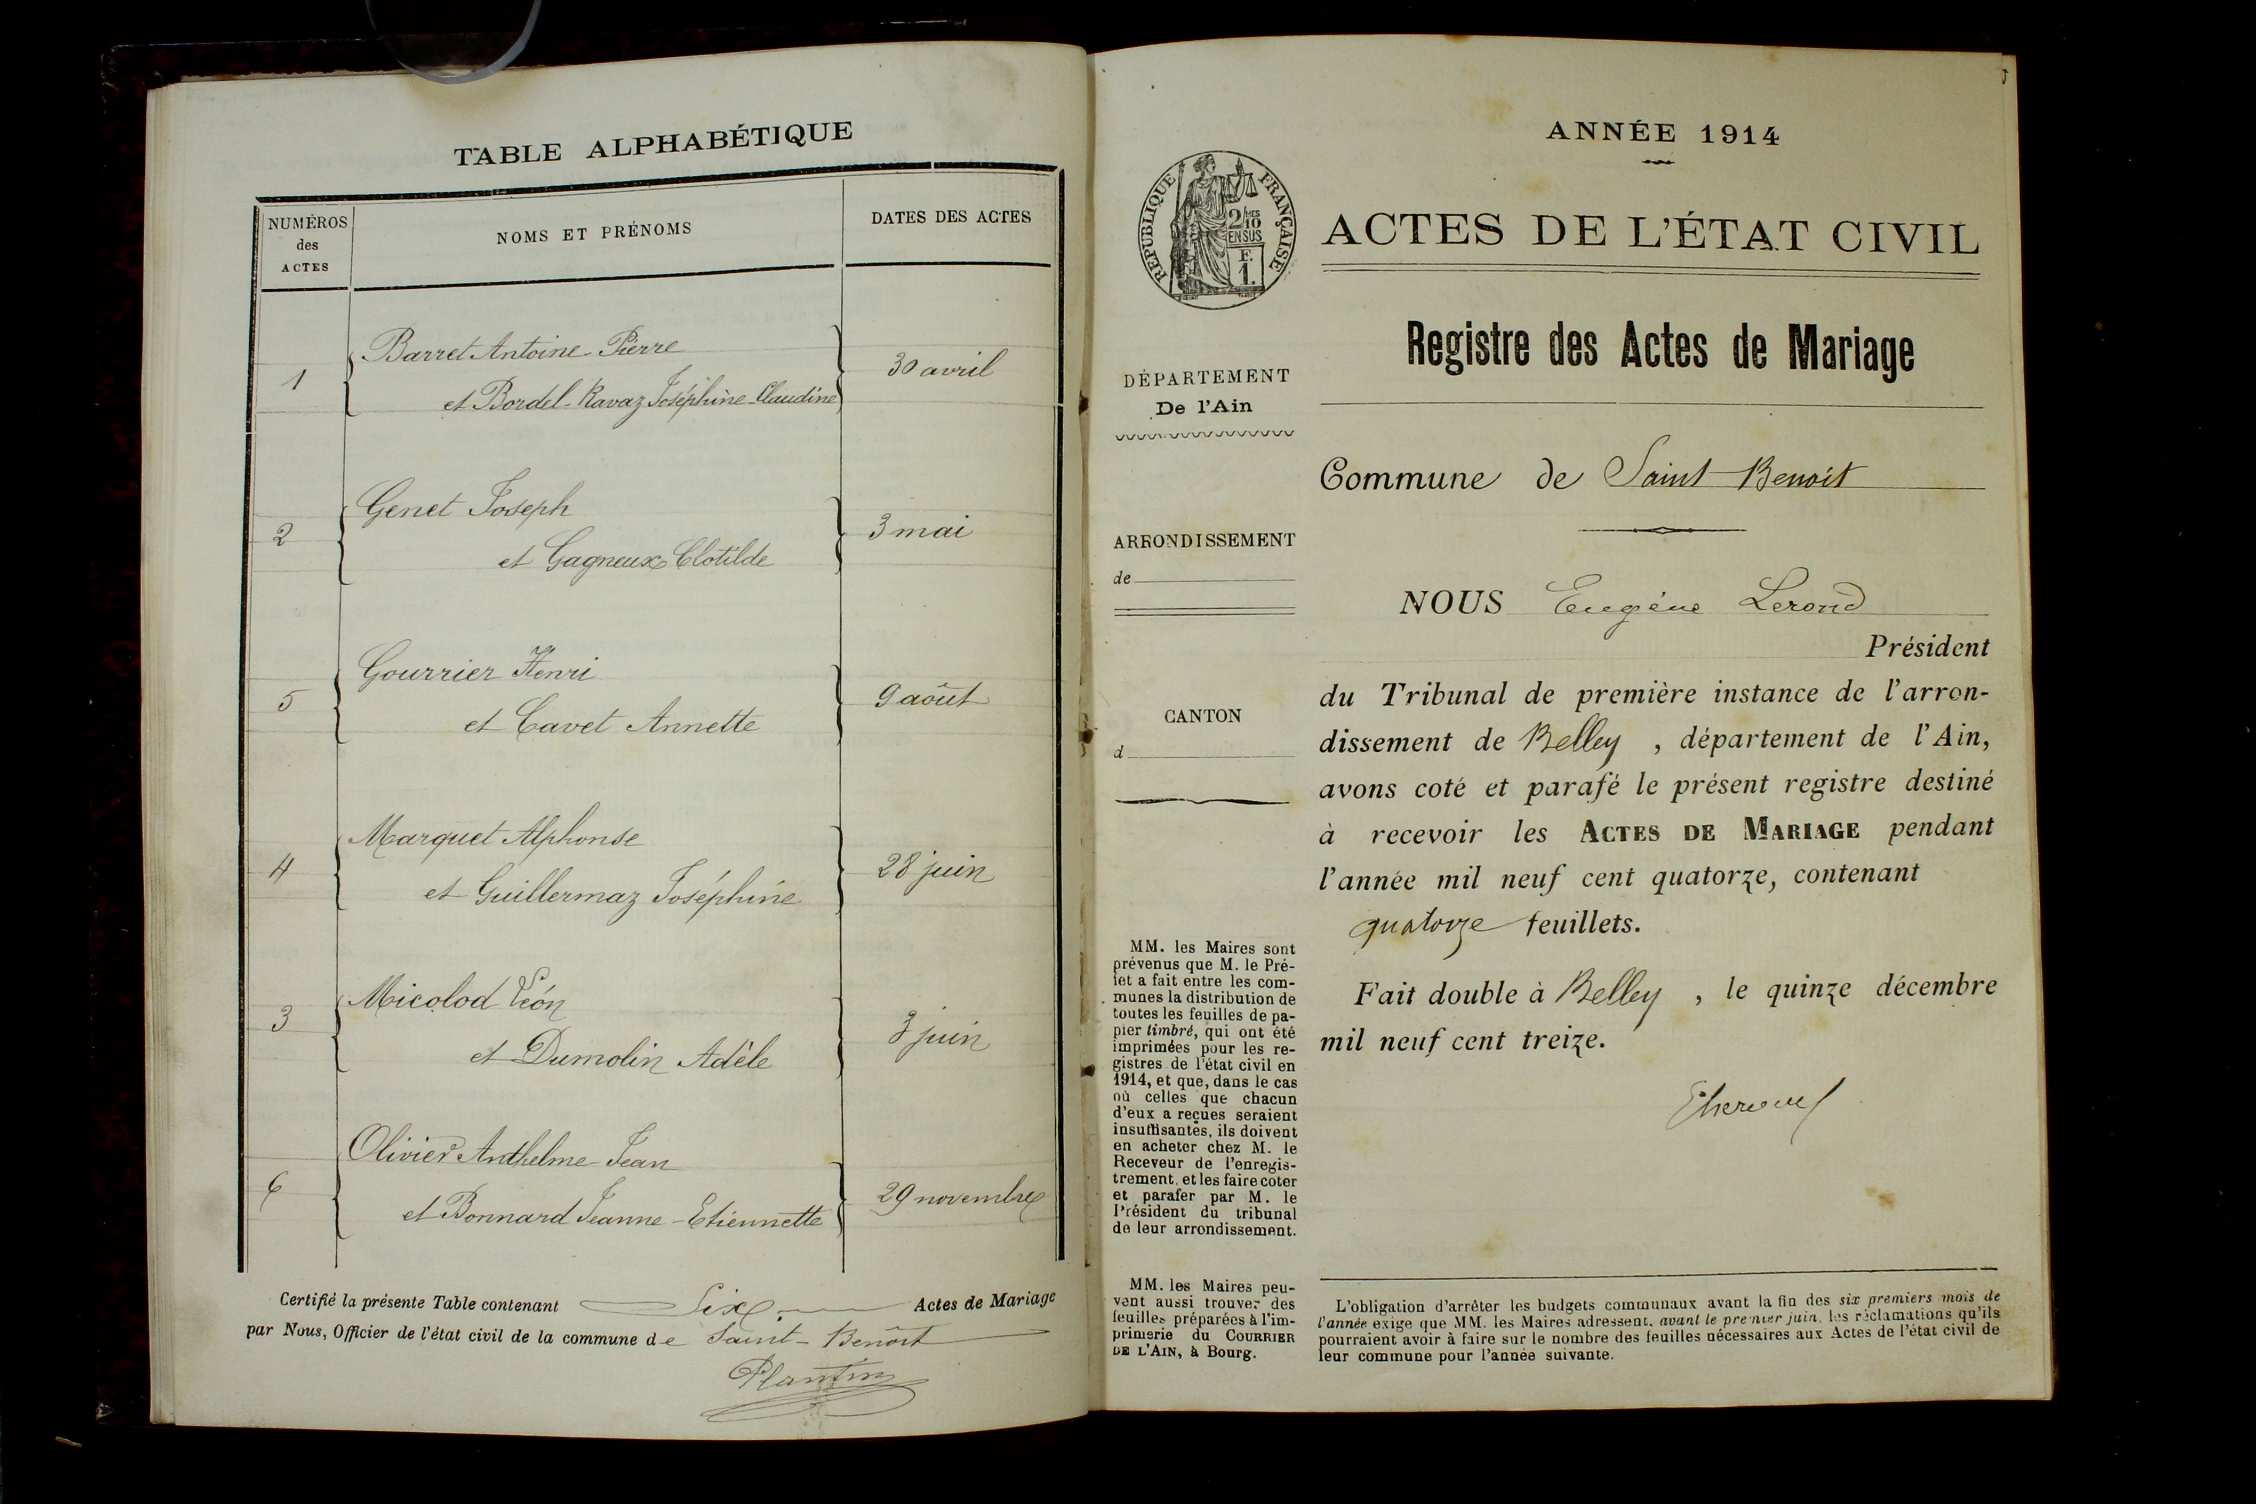 TABLE ALPHABÉTIQUE
NUMÉROS
des
ACTES
NOMS ET PRÉNOMS
DATES DES ACTES
1
Barret Antoine-Pierre
et Bordel-Ravaz Joséphine-Claudine
30 avril
2
Genet Joseph
et Gagneux Clotilde
3 mai
5
Gourrier Henri
et Cavet Annette
9 août
4
Marquet Alphonse
et Guillermaz Joséphine
28 juin
3
Micolod Léon
et Dumolin Adèle
juin
6
Olivier Anthelme-Jean
et Bonnard Jeanne-Etiennette
29 novembre
Certifié la présente Table contenant Six Actes de Mariage
par Nous, Officier de l'état civil de la commune de Saint-Benôit
Plantin
ANNÉE 1914
RÉPUBLIQUE FRANÇAISE
2/10
EN SUS
F.
1.
ACTES DE L'ÉTAT CIVIL
Registre des Actes de Mariage
DÉPARTEMENT
De l'Ain
Commune de Saint-Benoît
ARRONDISSEMENT
de
CANTON
d
NOUS Eugène Lerond
Président
du Tribunal de première instance de l'arron-
dissement de Belley, département de l'Ain,
avons coté et parafé le présent registre destiné
à recevoir les ACTES DE MARIAGE pendant
l'année mil neuf cent quatorze, contenant
quatorze feuillets.
Fait double à Belley, le quinze décembre
mil neuf cent treize.
MM. les Maires sont
prévenus que M. le Pré-
fet a fait entre les com-
munes la distribution de
toutes les feuilles de pa-
pier timbré, qui ont été
imprimées pour les re-
gistres de l'état civil en
1914, et que, dans le cas
où celles que chacun
d'eux a reçues seraient
insuffisantes, ils doivent
en acheter chez M. le
Receveur de l'enregis-
trement, et les faire coter
et parafer par M. le
Président du tribunal
de leur arrondissement.
MM. les Maires peu-
vent aussi trouver des
feuilles préparées à l'im-
primerie du COURRIER
DE L'AIN, à Bourg.
L'obligation d'arrêter les budgets communaux avant la fin des six premiers mois de
l'année exige que MM. les Maires adressent, avant le premier juin, les réclamations qu'ils
pourraient avoir à faire sur le nombre des feuilles nécessaires aux Actes de l'état civil de
leur commune pour l'année suivante.